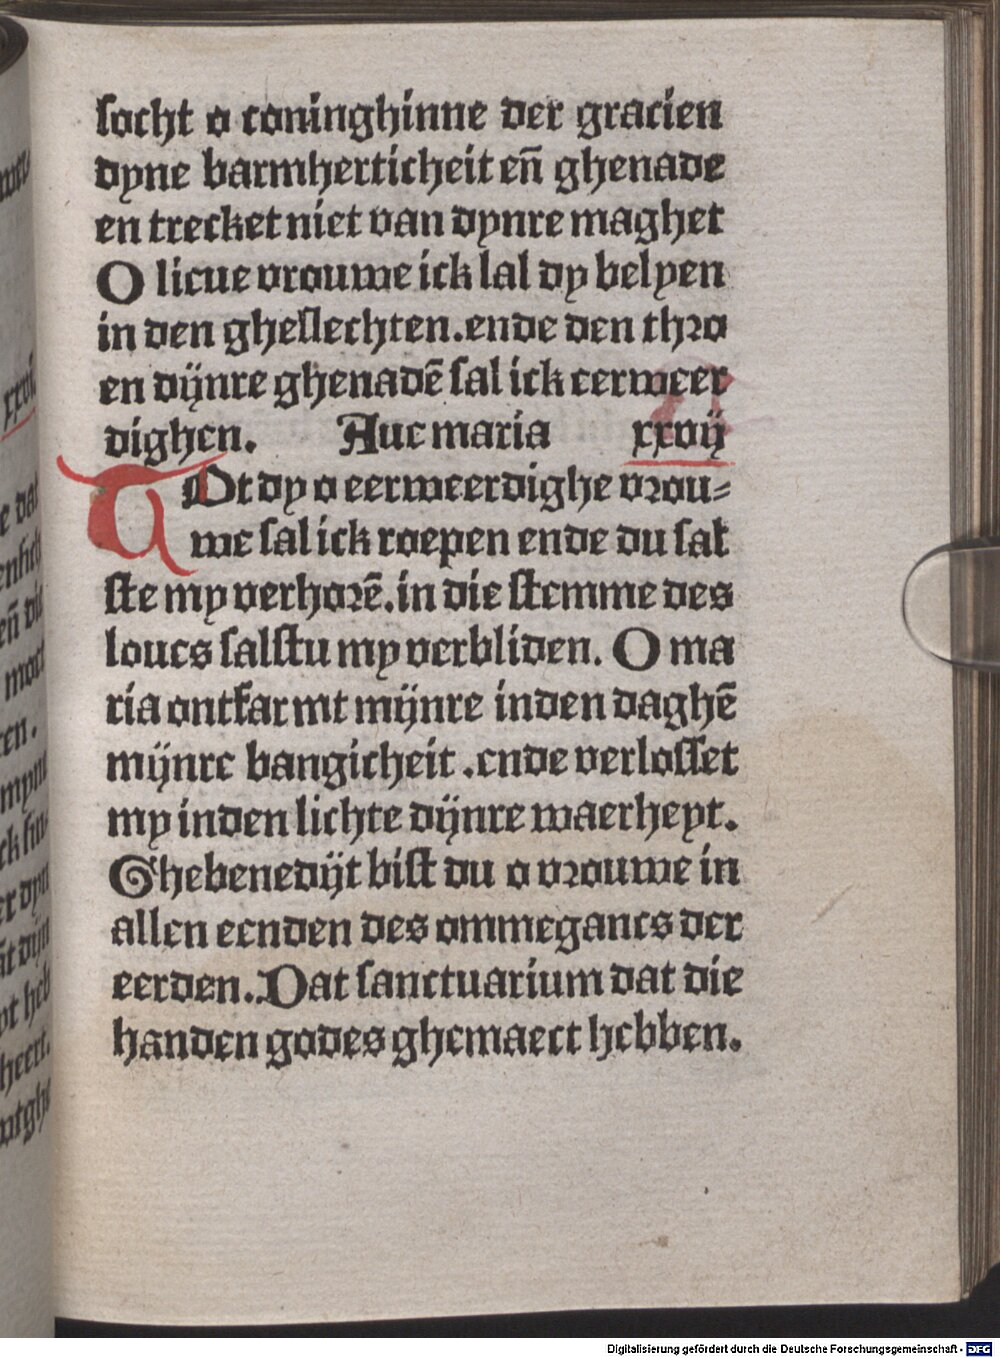 socht o coninghinne der gracien
dyne barmherticheit eñ ghenade
en trecket niet van dynre maghet
O lieue vrouwe ick sal dy belyen
in den gheslechten.ende den thro
en dijnre ghenadē sal ick eerweer
dighen. Aue maria xxvij
TOt dy o eerweerdighe vrou⸗
we sal ick roepen ende du sal
ste my verhorē.in die stemme des
loues salstu my verbliden. O ma
ria ontfarmt mijnre inden daghē
mijnre bangicheit .ende verlosset
my inden lichte dijnre waerheyt.
Ghebenedijt bist du o vrouwe in
allen eenden des ommegancs der
eerden. Dat sanctuarium dat die
handen godes ghemaect hebben.
xxvi.
Digitalisierung gefördert durch die Deutsche Forschungsgemeinschaft - DFG